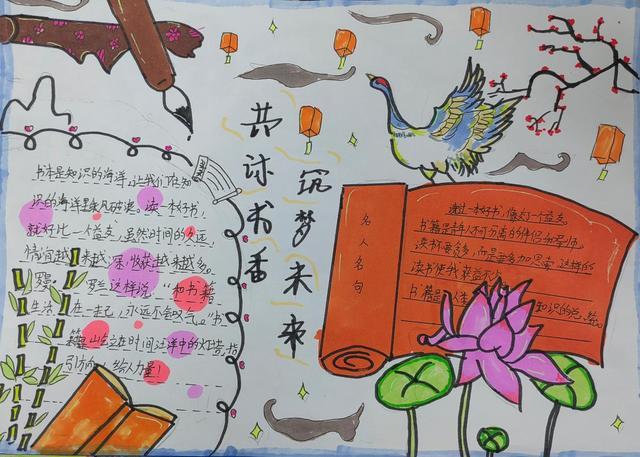 共讨书香
筑梦未来
书本是知识的海洋,让我们在知
识的海洋里乘风破浪。读一本好书,
就好比一个益友,虽然时间的久远,
情谊越来越深,收获越来越多。
罗兰这样说"和书籍
生活在一起,永远不会叹气。"书
籍屹立在时间汪洋中的灯塔,指
引方向,给人力量!
名人名句
遇一本好书,像交了一个益友
书籍是
读书不要多,而是要多加思索,这样的
读书使我获益不少
书籍是人类知识的总统。